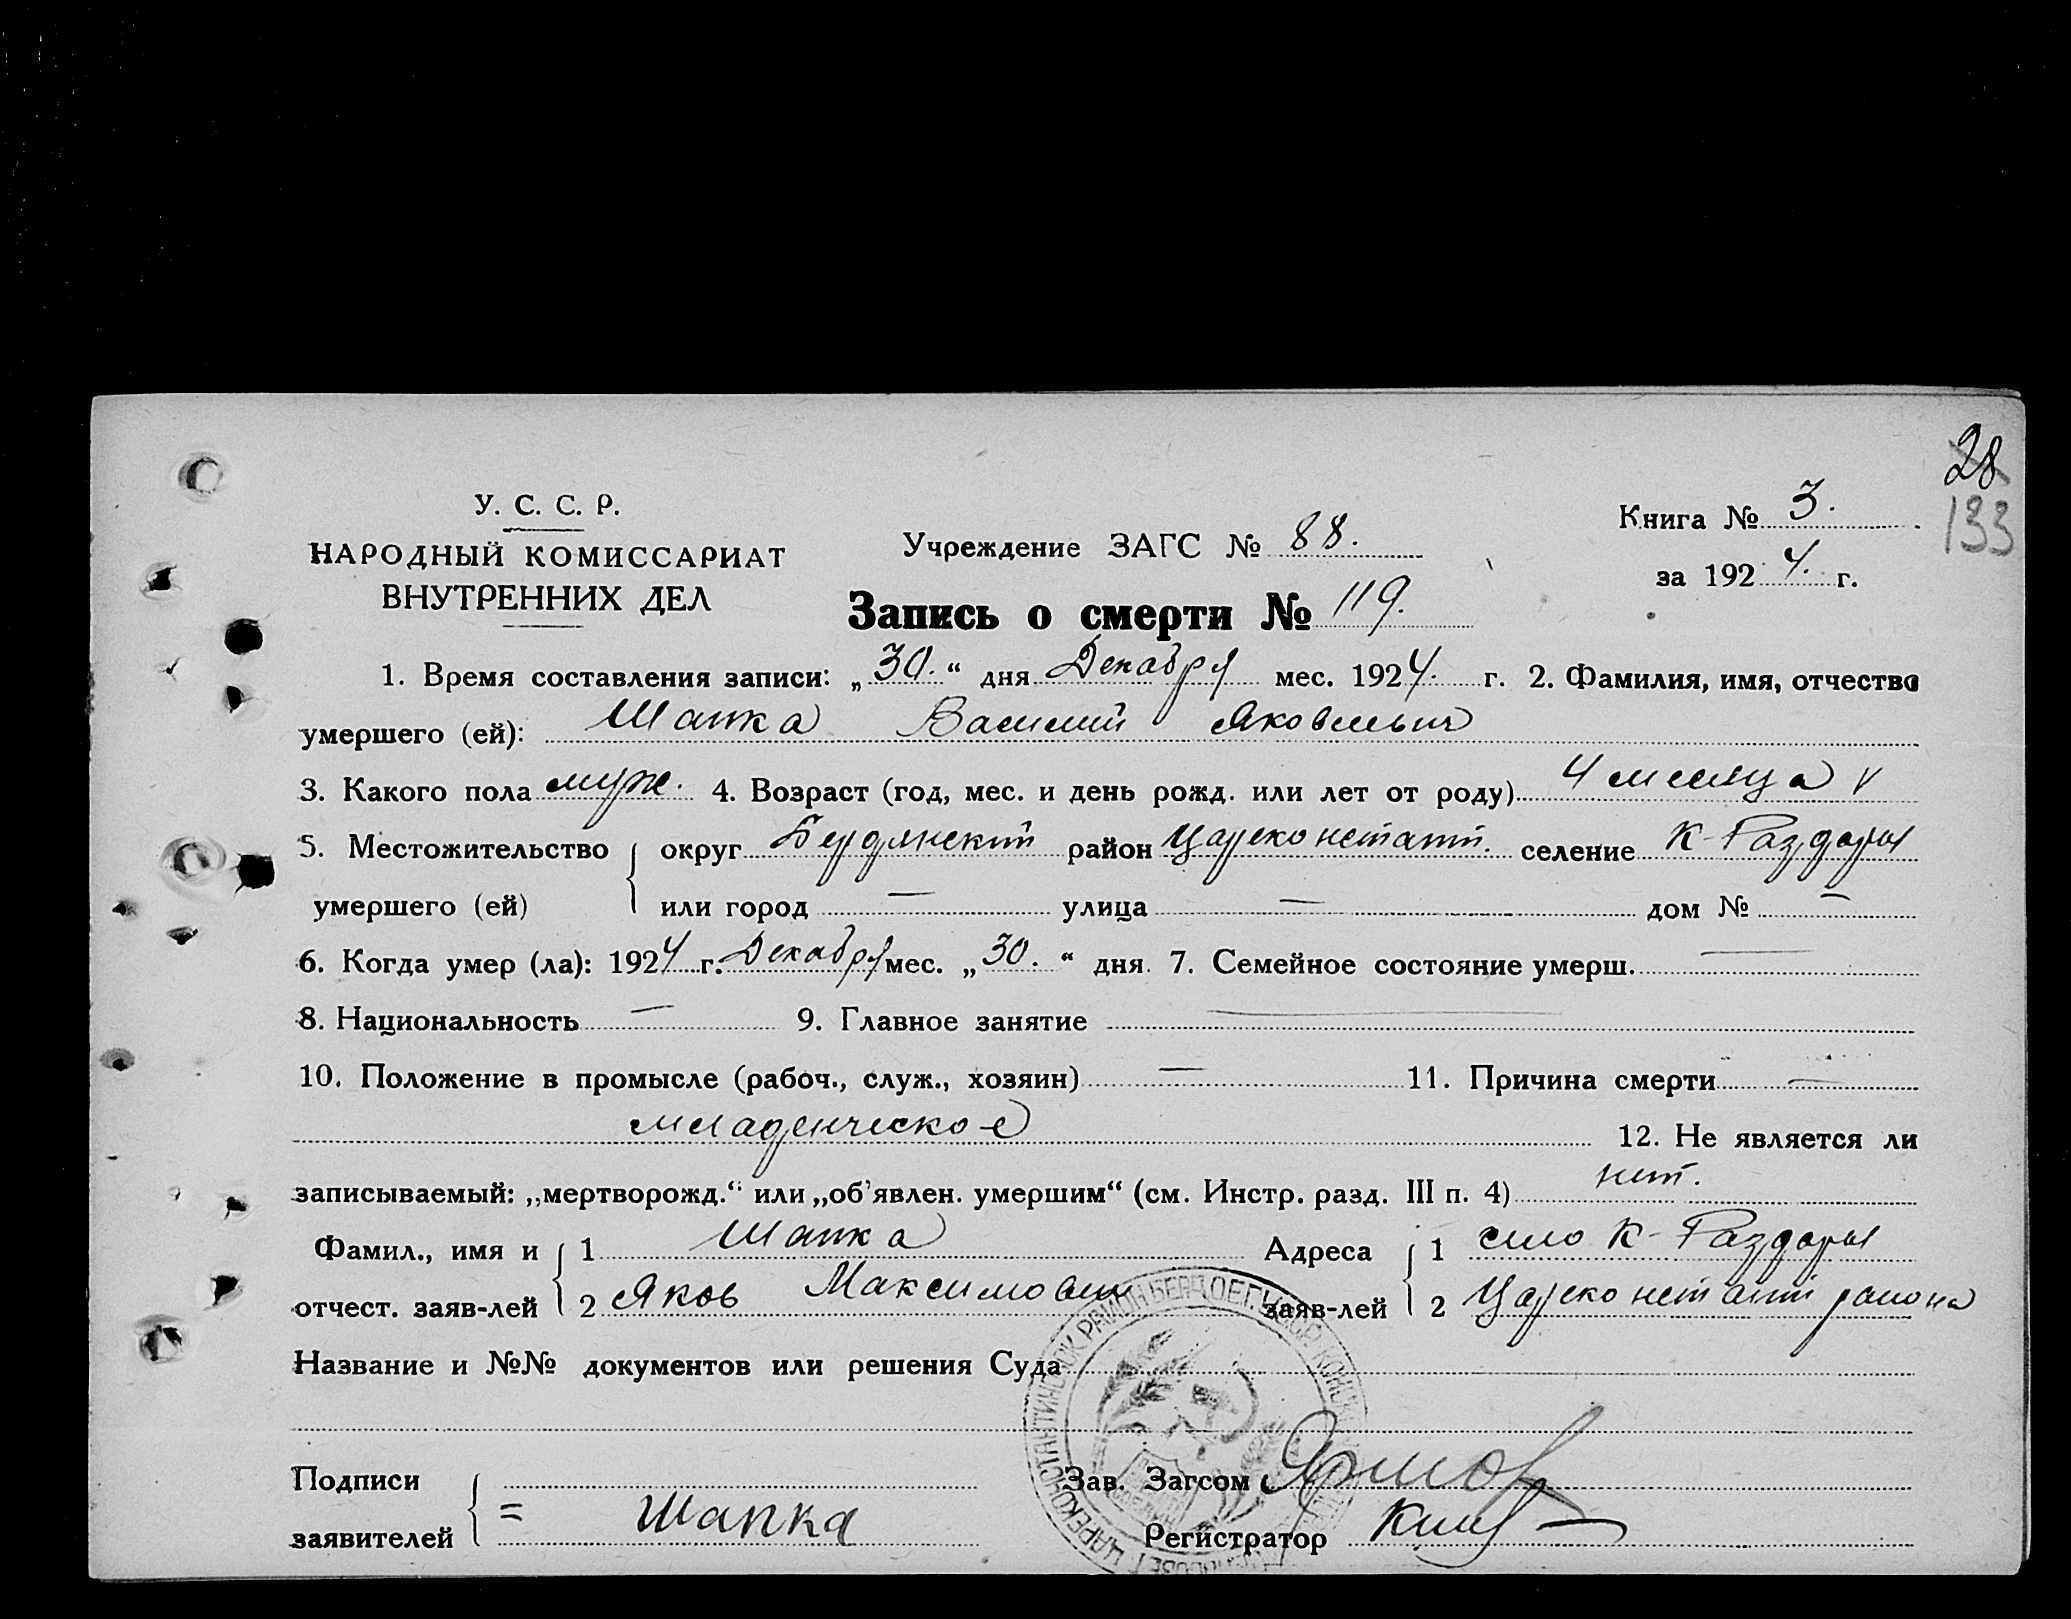 28
133
У. С. С. Р.
НАРОДНЫЙ КОМИССАРИАТ
ВНУТРЕННИХ ДЕЛ
Учреждение ЗАГС № 88.
Книга № 3.
за 1924. г.
Запись о смерти № 119.
1. Время составления записи: „30.“ дня Декабря мес. 1924. г. 2. Фамилия, имя, отчество
умершего (ей): Шапка Василий Яковлевич
3. Какого пола муж. 4. Возраст (год, мес. и день рожд. или лет от роду) 4 месяца
5. Местожительство округ Бердянский район Цареконстант. селение К-Раздоры
умершего (ей) или город — улица — дом № —
6. Когда умер (ла): 1924 г. Декабря мес. „30.“ дня. 7. Семейное состояние умерш. —
8. Национальность — 9. Главное занятие —
10. Положение в промысле (рабоч., служ., хозяин) — 11. Причина смерти —
младенческое 12. Не является ли
записываемый: „мертворожд.“ или „об'явлен. умершим“ (см. Инстр. разд. III п. 4) нет.
Фамил., имя и 1 Шапка Адреса 1 село К-Раздоры
отчест. заяв-лей 2 Яков Максимович заяв-лей 2 Цареконстант района
Название и №№ документов или решения Суда
Подписи Зав. Загсом
заявителей = Шапка Регистратор